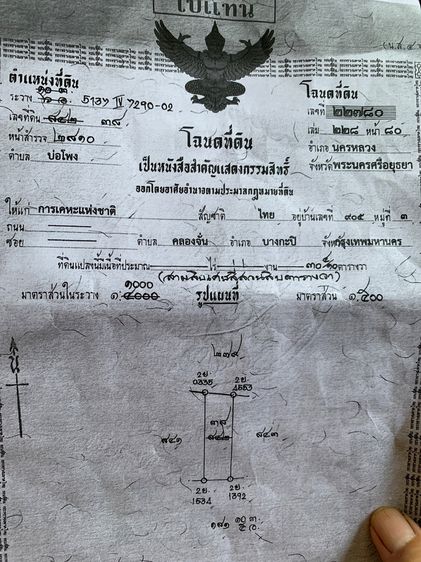 ใบแทน
(น.ส.๔
ตำแหน่งที่ดิน
ระวาง 5137 IV 7290-02
เลขที่ดิน ๘๔๒ ๓๙
หน้าสำรวจ ๒๘๑๐
ตำบล บ่อโพง
โฉนดที่ดิน
เลขที่ ๒๒๗๘๐
เล่ม ๒๒๘ หน้า ๘๐
อำเภอ นครหลวง
จังหวัดพระนครศรีอยุธยา
โฉนดที่ดิน
เป็นหนังสือสำคัญแสดงกรรมสิทธิ์
ออกโดยอาศัยอำนาจตามประมวลกฎหมายที่ดิน
ให้แก่ การเคหะแห่งชาติ สัญชาติ ไทย อยู่บ้านเลขที่ ๙๐๕ หมู่ที่ ๓
ถนน
ซอย ตำบล คลองจั่น อำเภอ บางกะปิ จังหวัดกรุงเทพมหานคร
ที่ดินแปลงนี้มีเนื้อที่ประมาณ ไร่ งาน ตารางวา
๑๐๐๐
มาตราส่วนในระวาง ๑:๔๐๐๐ รูปแผนที่ มาตราส่วน ๑:๕๐๐
น
๒๗๙
2ย. 2ย.
0335 1553
๓๙
๘๔๑ ๘๔๒ ๘๔๓
2ย. 2ย.
1534 1392